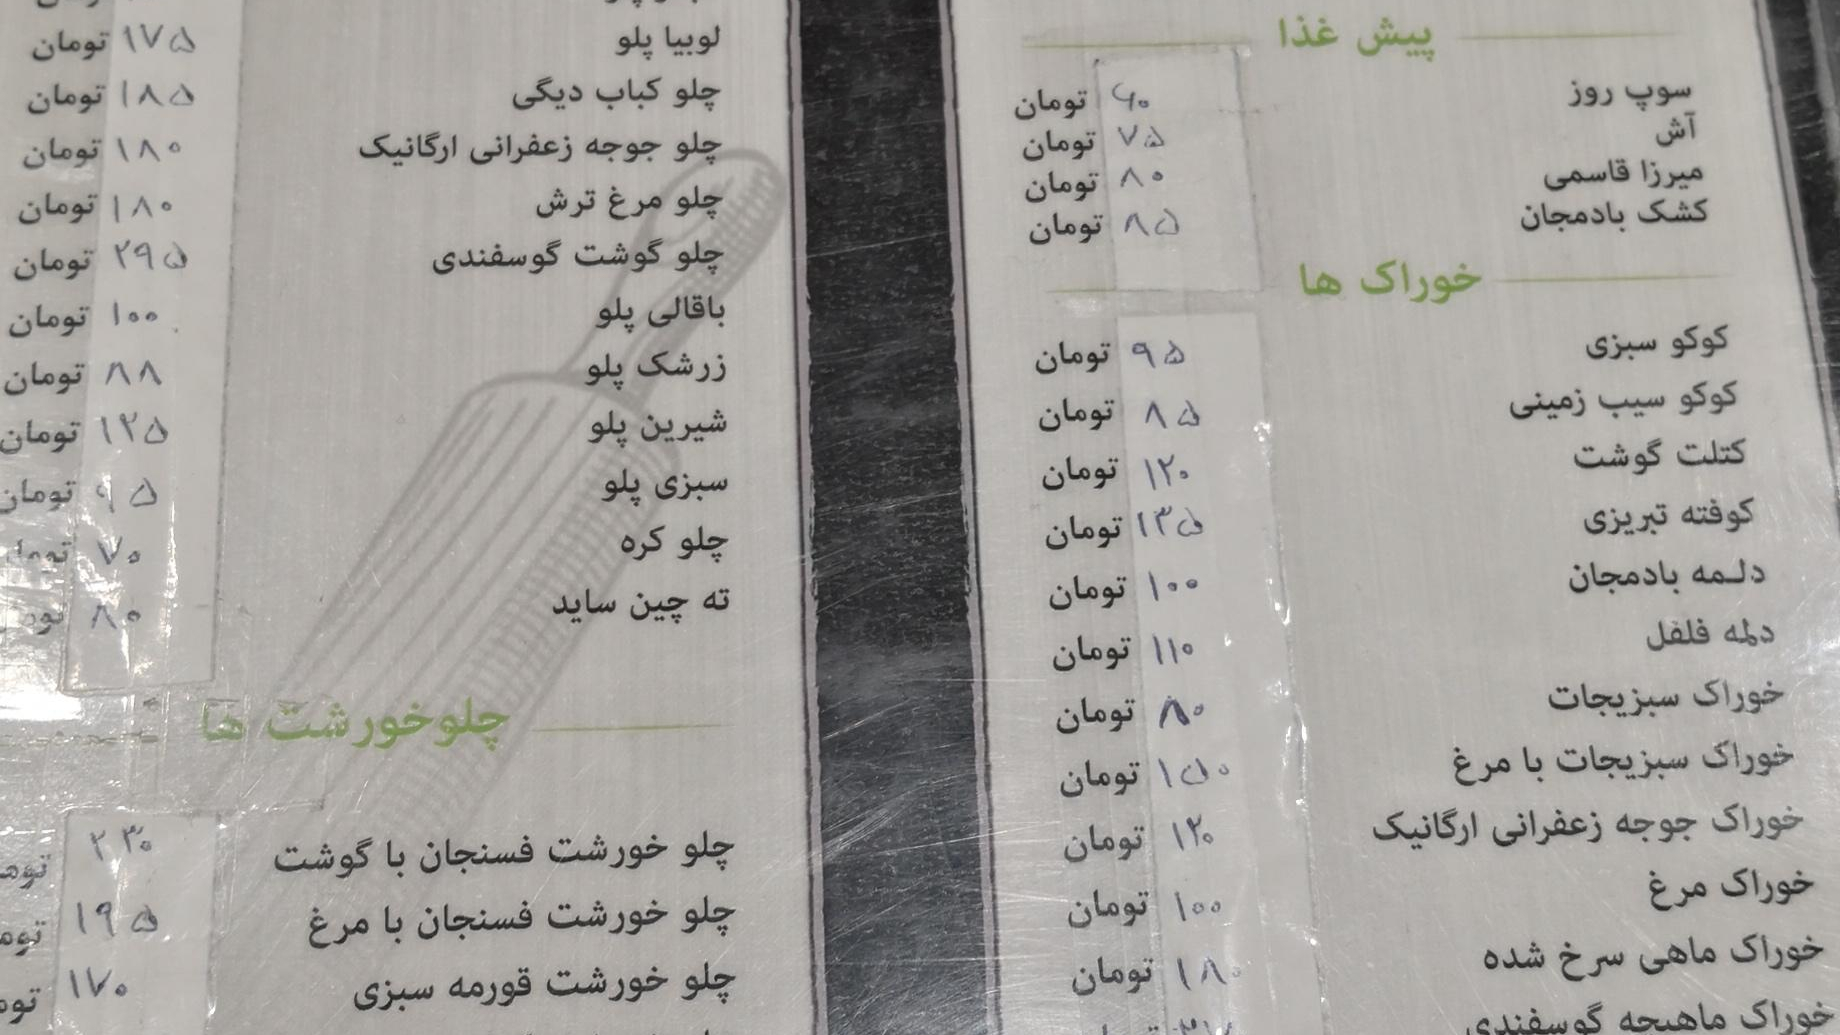 پیش غذا
سوپ روز ۶۰ تومان
آش ۷۵ تومان
میرزا قاسمی ۸۰ تومان
کشک بادمجان ۸۵ تومان
خوراک ها
کوکو سبزی ۹۵ تومان
کوکو سیب زمینی ۸۵ تومان
کتلت گوشت ۱۲۰ تومان
کوفته تبریزی ۱۳۵ تومان
دلمه بادمجان ۱۰۰ تومان
دلمه فلفل ۱۱۰ تومان
خوراک سبزیجات ۸۰ تومان
خوراک سبزیجات با مرغ ۱۵۰ تومان
خوراک جوجه زعفرانی ارگانیک ۱۲۰ تومان
خوراک مرغ ۱۰۰ تومان
خوراک ماهی سرخ شده ۱۸۰ تومان
خوراک ماهیچه گوسفندی
لوبیا پلو ۱۷۵ تومان
چلو کباب دیگی ۱۸۵ تومان
چلو جوجه زعفرانی ارگانیک ۱۸۰ تومان
چلو مرغ ترش ۱۸۰ تومان
چلو گوشت گوسفندی ۲۹۵ تومان
باقالی پلو ۱۰۰ تومان
زرشک پلو ۸۸ تومان
شیرین پلو ۱۲۵ تومان
سبزی پلو ۹۵ تومان
چلو کره ۷۰ تومان
ته چین ساید ۸۰
چلوخورشت ها
چلو خورشت فسنجان با گوشت ۲۳۰
چلو خورشت فسنجان با مرغ ۱۹۵
چلو خورشت قورمه سبزی ۱۷۰